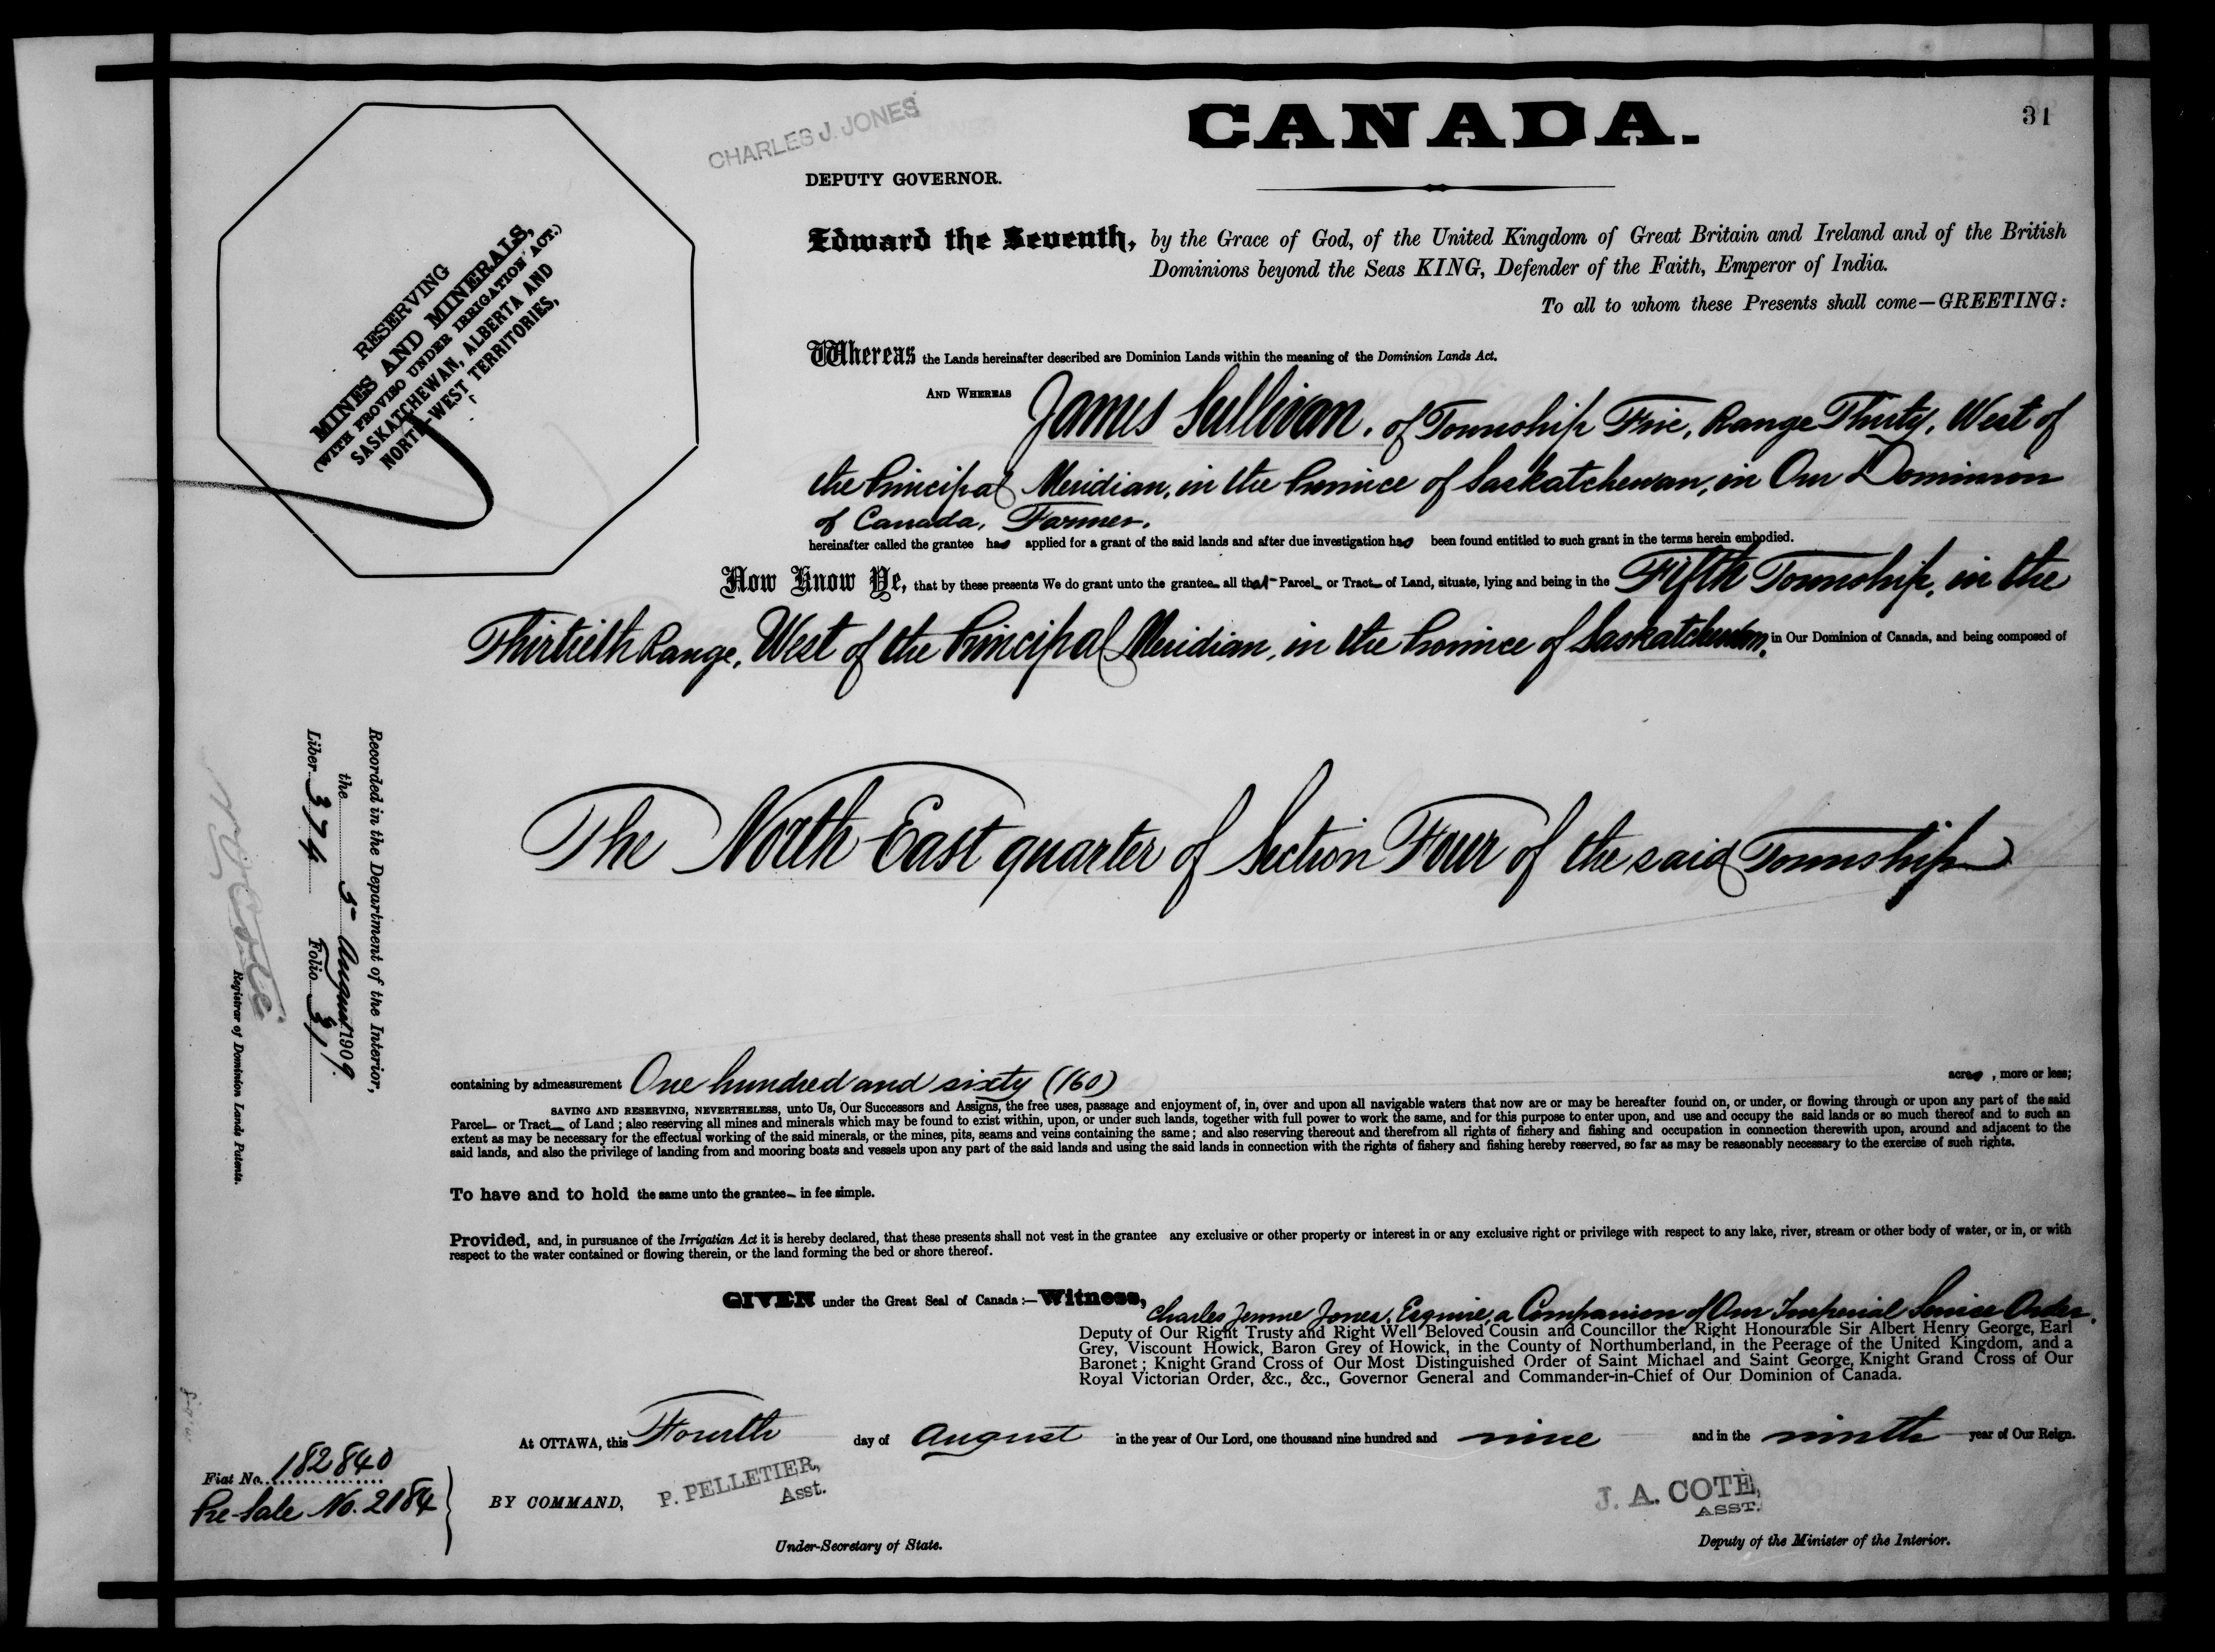 31
CHARLES J. JONES
CANADA.
DEPUTY GOVERNOR.
RESERVING
MINES AND MINERALS,
(WITH PROVISO UNDER IRRIGATION ACT.)
SASKATCHEWAN, ALBERTA AND
NORTH-WEST TERRITORIES,
Edward the Seventh, by the Grace of God, of the United Kingdom of Great Britain and Ireland and of the British
Dominions beyond the Seas KING, Defender of the Faith, Emperor of India.
To all to whom these Presents shall come—GREETING:
Whereas the Lands hereinafter described are Dominion Lands within the meaning of the Dominion Lands Act.
AND WHEREAS James Sullivan, of Township Five, Range Thirty, West of
the Principal Meridian, in the Province of Saskatchewan, in Our Dominion
of Canada, Farmer.
hereinafter called the grantee has applied for a grant of the said lands and after due investigation has been found entitled to such grant in the terms herein embodied.
Now Know Ye, that by these presents We do grant unto the grantee all that Parcel or Tract of Land, situate, lying and being in the Fifth Township, in the
Thirtieth Range, West of the Principal Meridian, in the Province of Saskatchewan, in Our Dominion of Canada, and being composed of
The North East quarter of Section Four of the said Township
Recorded in the Department of the Interior,
the 5 August 1909.
Liber 374 Folio 31
Registrar of Dominion Lands Patents.
containing by admeasurement One hundred and sixty (160) acres, more or less;
SAVING AND RESERVING, NEVERTHELESS, unto Us, Our Successors and Assigns, the free uses, passage and enjoyment of, in, over and upon all navigable waters that now are or may be hereafter found on, or under, or flowing through or upon any part of the said
Parcel or Tract of Land; also reserving all mines and minerals which may be found to exist within, upon, or under such lands, together with full power to work the same, and for this purpose to enter upon, and use and occupy the said lands or so much thereof and to such an
extent as may be necessary for the effectual working of the said minerals, or the mines, pits, seams and veins containing the same; and also reserving thereout and therefrom all rights of fishery and fishing and occupation in connection therewith upon, around and adjacent to the
said lands, and also the privilege of landing from and mooring boats and vessels upon any part of the said lands and using the said lands in connection with the rights of fishery and fishing hereby reserved, so far as may be reasonably necessary to the exercise of such rights.
To have and to hold the same unto the grantee in fee simple.
Provided, and, in pursuance of the Irrigation Act it is hereby declared, that these presents shall not vest in the grantee any exclusive or other property or interest in or any exclusive right or privilege with respect to any lake, river, stream or other body of water, or in, or with
respect to the water contained or flowing therein, or the land forming the bed or shore thereof.
GIVEN under the Great Seal of Canada:—Witness, Charles Jones, Esquire, a Companion of Our Imperial Service Order,
Deputy of Our Right Trusty and Right Well Beloved Cousin and Councillor the Right Honourable Sir Albert Henry George, Earl
Grey, Viscount Howick, Baron Grey of Howick, in the County of Northumberland, in the Peerage of the United Kingdom, and a
Baronet; Knight Grand Cross of Our Most Distinguished Order of Saint Michael and Saint George, Knight Grand Cross of Our
Royal Victorian Order, &c., &c., Governor General and Commander-in-Chief of Our Dominion of Canada.
At OTTAWA, this Fourth day of August in the year of Our Lord, one thousand nine hundred and nine and in the ninth year of Our Reign.
Fiat No. 182840
Pre-Sale No. 2184
BY COMMAND,
P. PELLETIER,
Asst.
J. A. COTÉ,
ASST.
Under-Secretary of State.
Deputy of the Minister of the Interior.